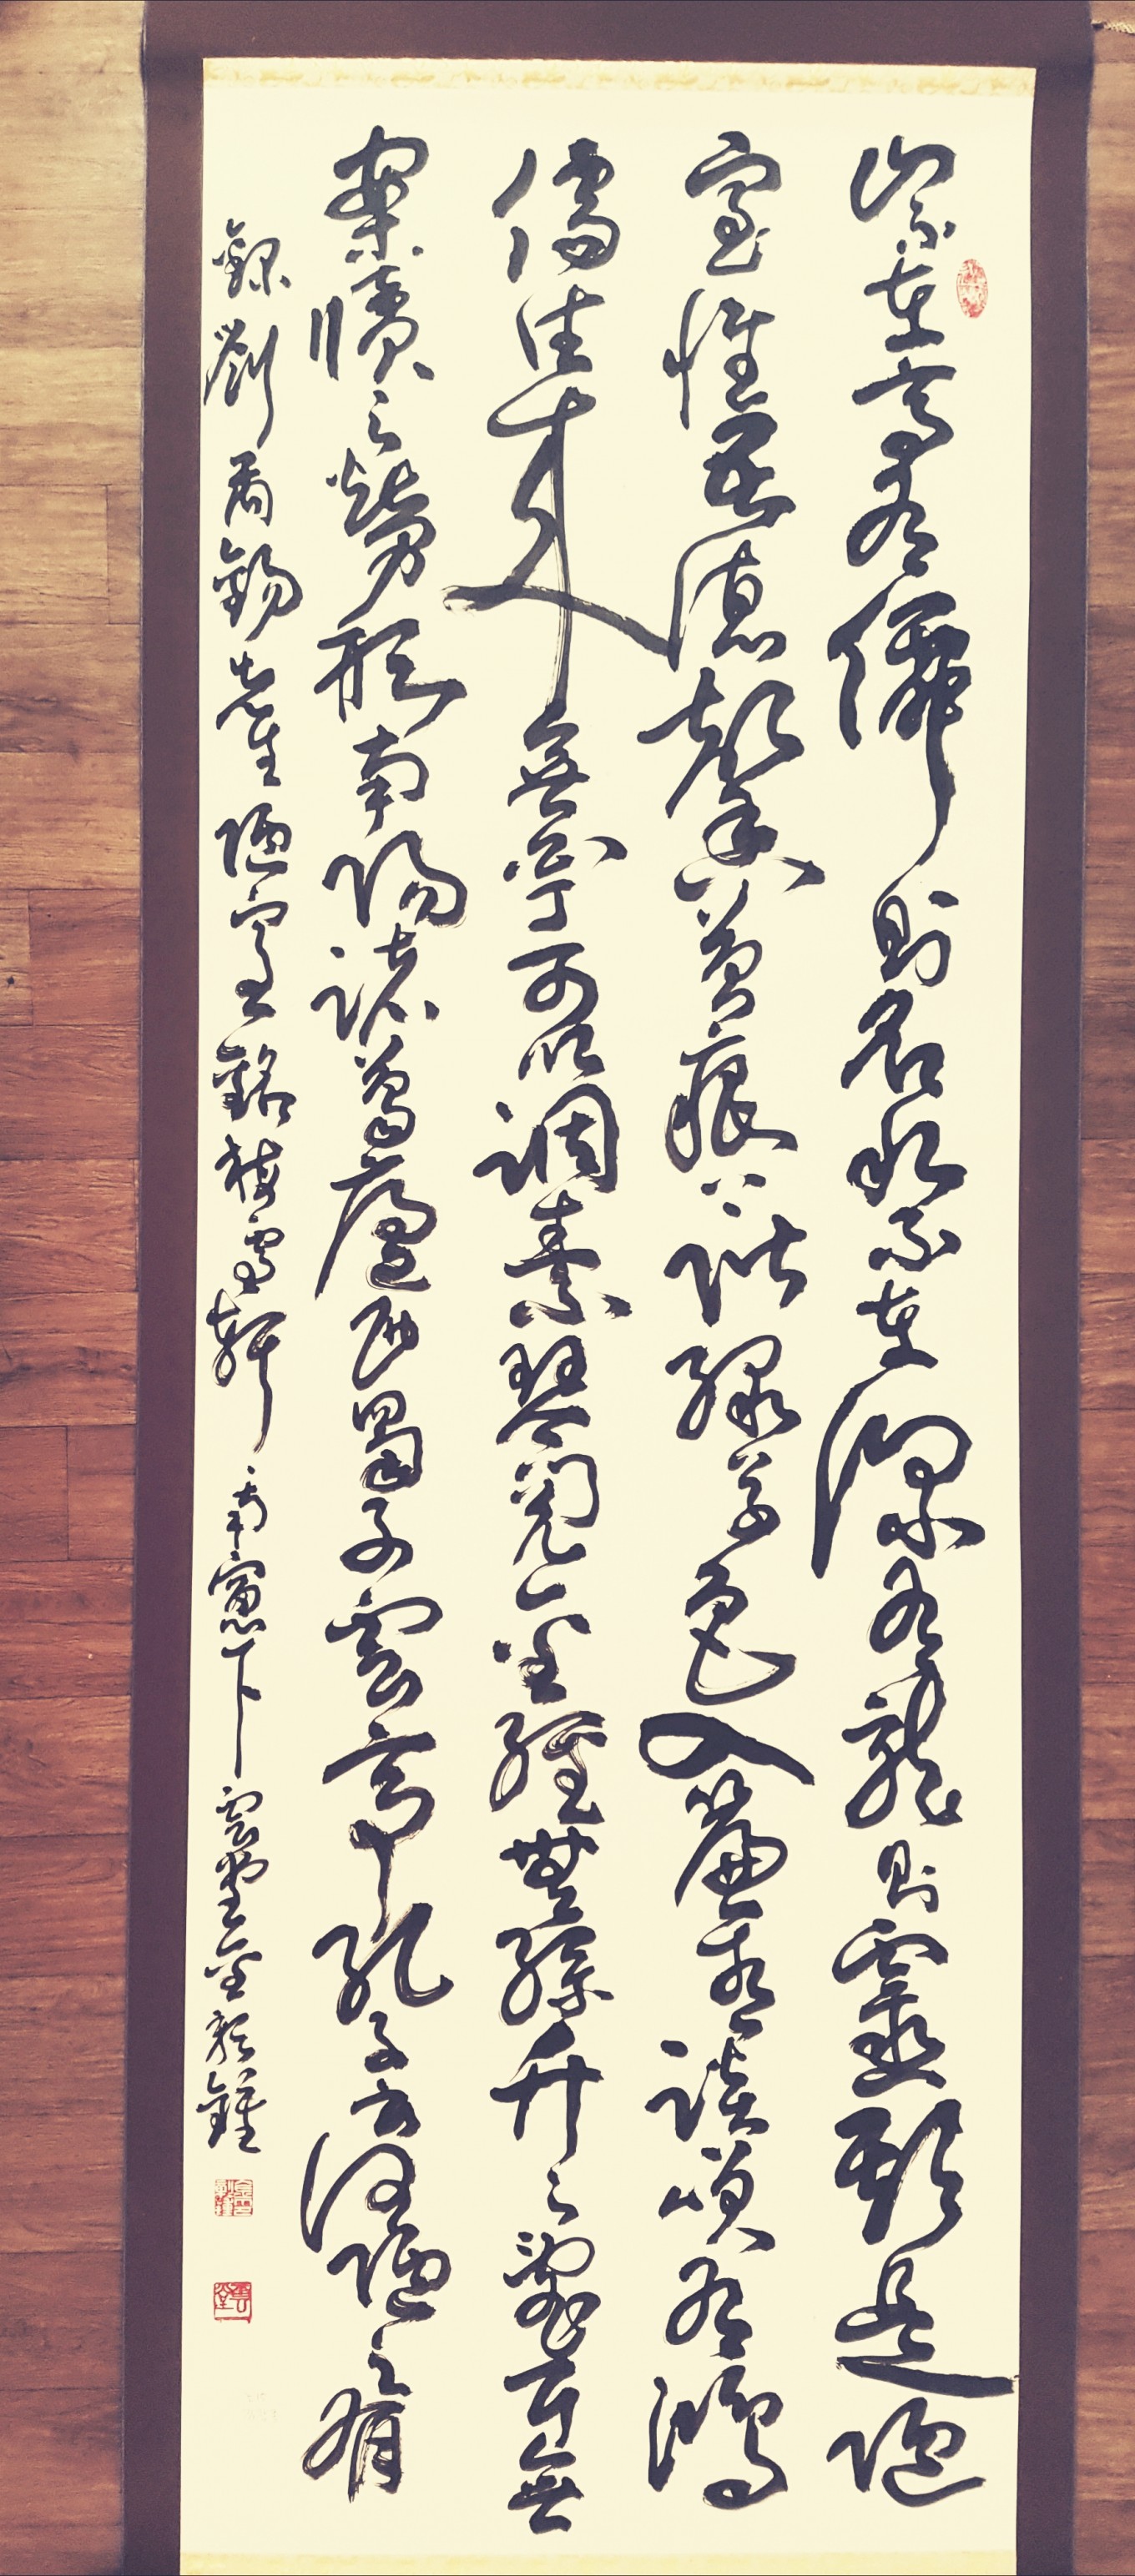 山不在高有僊則名水不在深有龍則靈斯是陋
室惟吾德馨苔痕上階綠草色入簾青談笑有鴻
儒往來無白丁可以調素琴閱金經無絲竹之亂耳無
案牘之勞形南陽諸葛廬西蜀子雲亭孔子云何陋之有
錄劉禹錫先生陋室銘 雪軒南窓下雲堂金 鍾